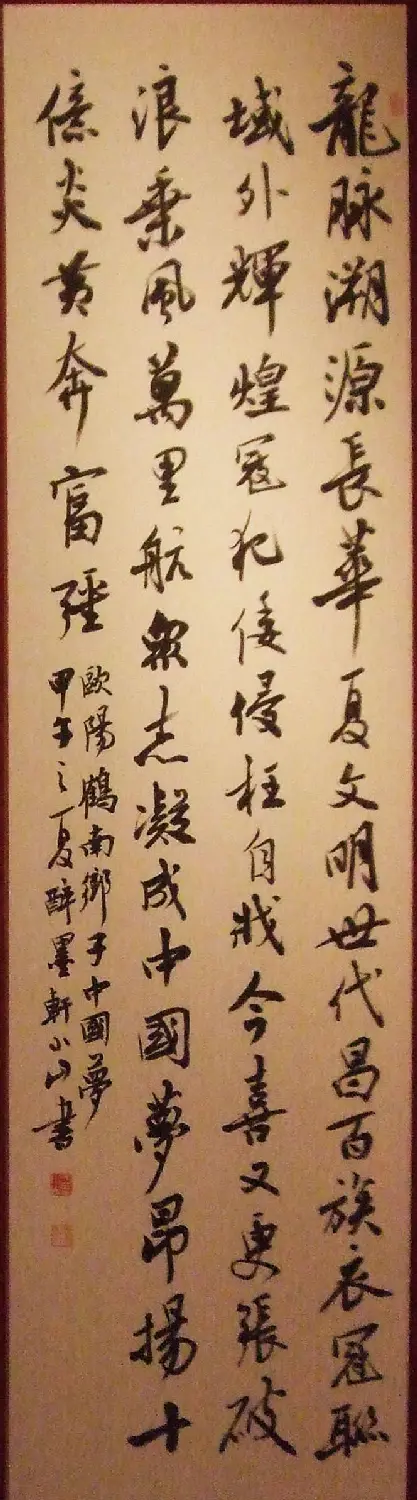 龍脉溯源長華夏文明世代昌百族衣冠聯
域外輝煌寇犯倭侵枉自戕今喜又更張破
浪乘風萬里航眾志凝成中國夢昂揚十
億炎黃奔富強
歐陽鶴南鄉子中國夢
甲午之夏醉墨軒小山書